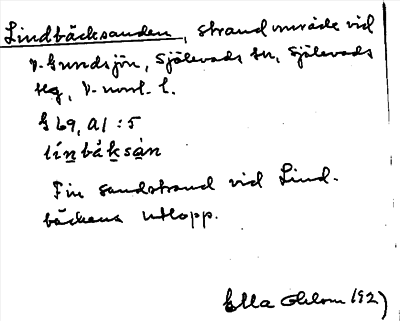 Lindbäcksanden, strandområde vid
V. Gundsjön, Själevads sn, Själevads
tlg, V-norrl. l.
G 69, A1 : 5
linbäksàn
Fin sandstrand vid Lind-
bäckens utlopp.
Ella Ohlson 192)